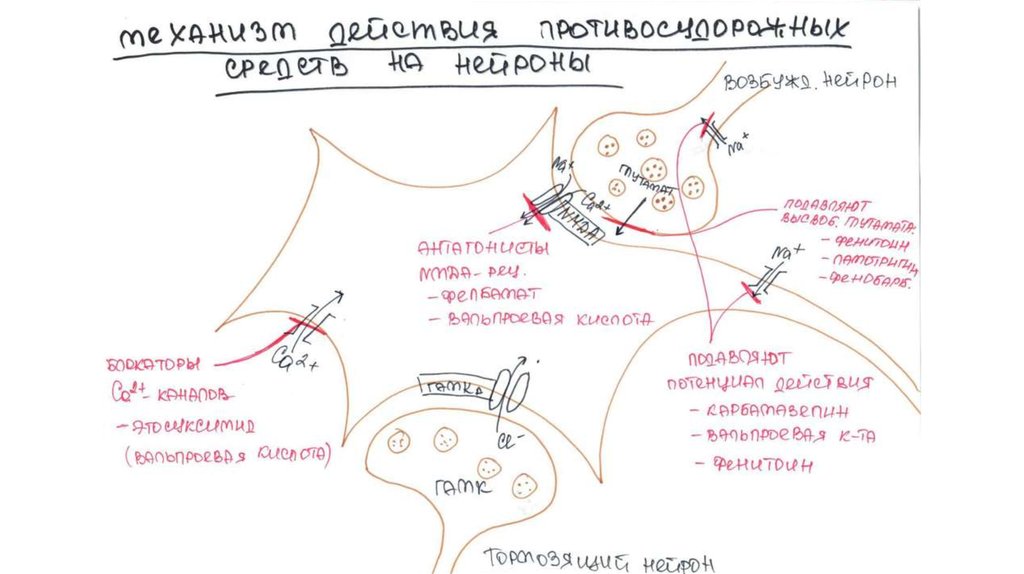 МЕХАНИЗМ ДЕЙСТВИЯ ПРОТИВОСУДОРОЖНЫХ
СРЕДСТВ НА НЕЙРОНЫ
ВОЗБУЖД. НЕЙРОН
Na+
ГЛУТАМАТ
Na+
Ca2+
NMDA
ПОДАВЛЯЮТ
ВЫСВОБ. ГЛУТАМАТА:
- ФЕНИТОИН
- ЛАМОТРИГИН
- ФЕНОБАРБ.
Na+
АНТАГОНИСТЫ
NMDA-РЕЦ.
- ФЕЛБАМАТ
- ВАЛЬПРОЕВАЯ КИСЛОТА
Ca2+
БЛОКАТОРЫ
Ca2+-КАНАЛОВ
- ЭТОСУКСИМИД
(ВАЛЬПРОЕВАЯ КИСЛОТА)
ПОДАВЛЯЮТ
ПОТЕНЦИАЛ ДЕЙСТВИЯ
- КАРБАМАЗЕПИН
- ВАЛЬПРОЕВАЯ К-ТА
- ФЕНИТОИН
ГАМКА
Cl-
ГАМК
ТОРМОЗЯЩИЙ НЕЙРОН